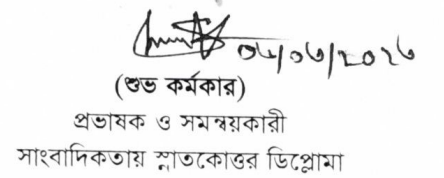 ০৮/০৬/২০২৬
(শুভ কর্মকার)
প্রভাষক ও সমন্বয়কারী
সাংবাদিকতায় স্নাতকোত্তর ডিপ্লোমা